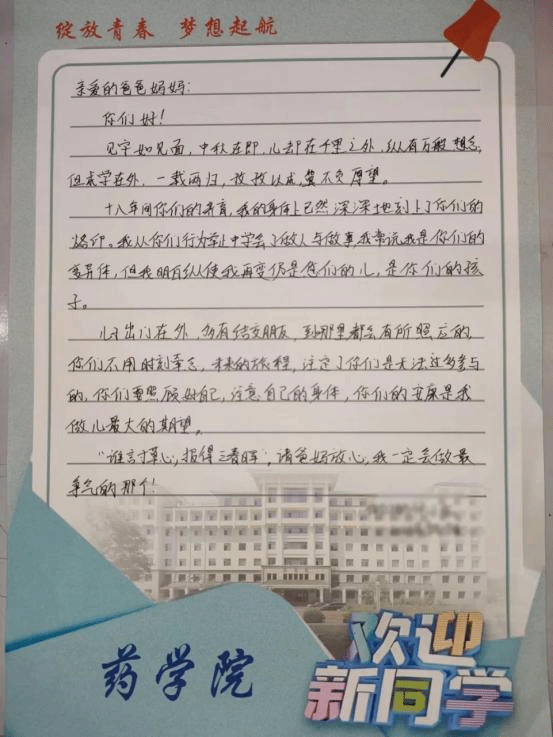 绽放青春 梦想起航
亲爱的爸爸妈妈:
你们好!
见字如见面,中秋在即,儿却在千里之外,纵有万般想念,
但求学在外,一载两归,孜孜以求,冀不负厚望。
十八年间你们的养育,我的身体上已然深深地刻上了你们的
烙印。我从你们行为举止中学会了做人与做事,我常说我是你们的
变异体,但我明白纵使我再变仍是你们的儿,是你们的孩
子。
儿子出门在外,多有结交朋友,到哪里都会有所照应的,
你们不用时刻牵念,未来的旅程,注定了你们是无法过多参与
的,你们要照顾好自己,注意自己的身体,你们的安康是我
做儿最大的期望。
“谁言寸草心,报得三春晖”,请爸妈放心,我一定会做最
争气的那个!
药学院
欢迎
新同学